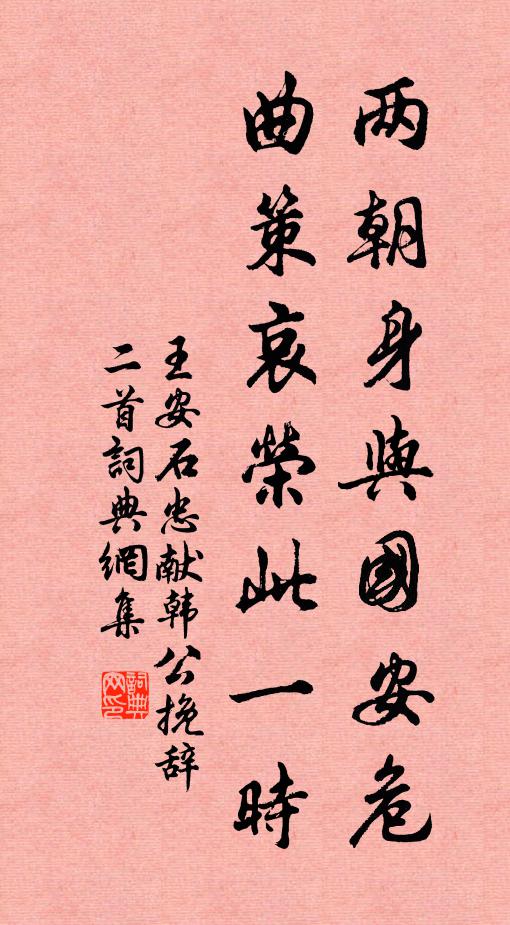 两朝身與國安危
曲策哀榮此一時
王安石忠献韩公挽辞
二首詞典網集
詞典
网印